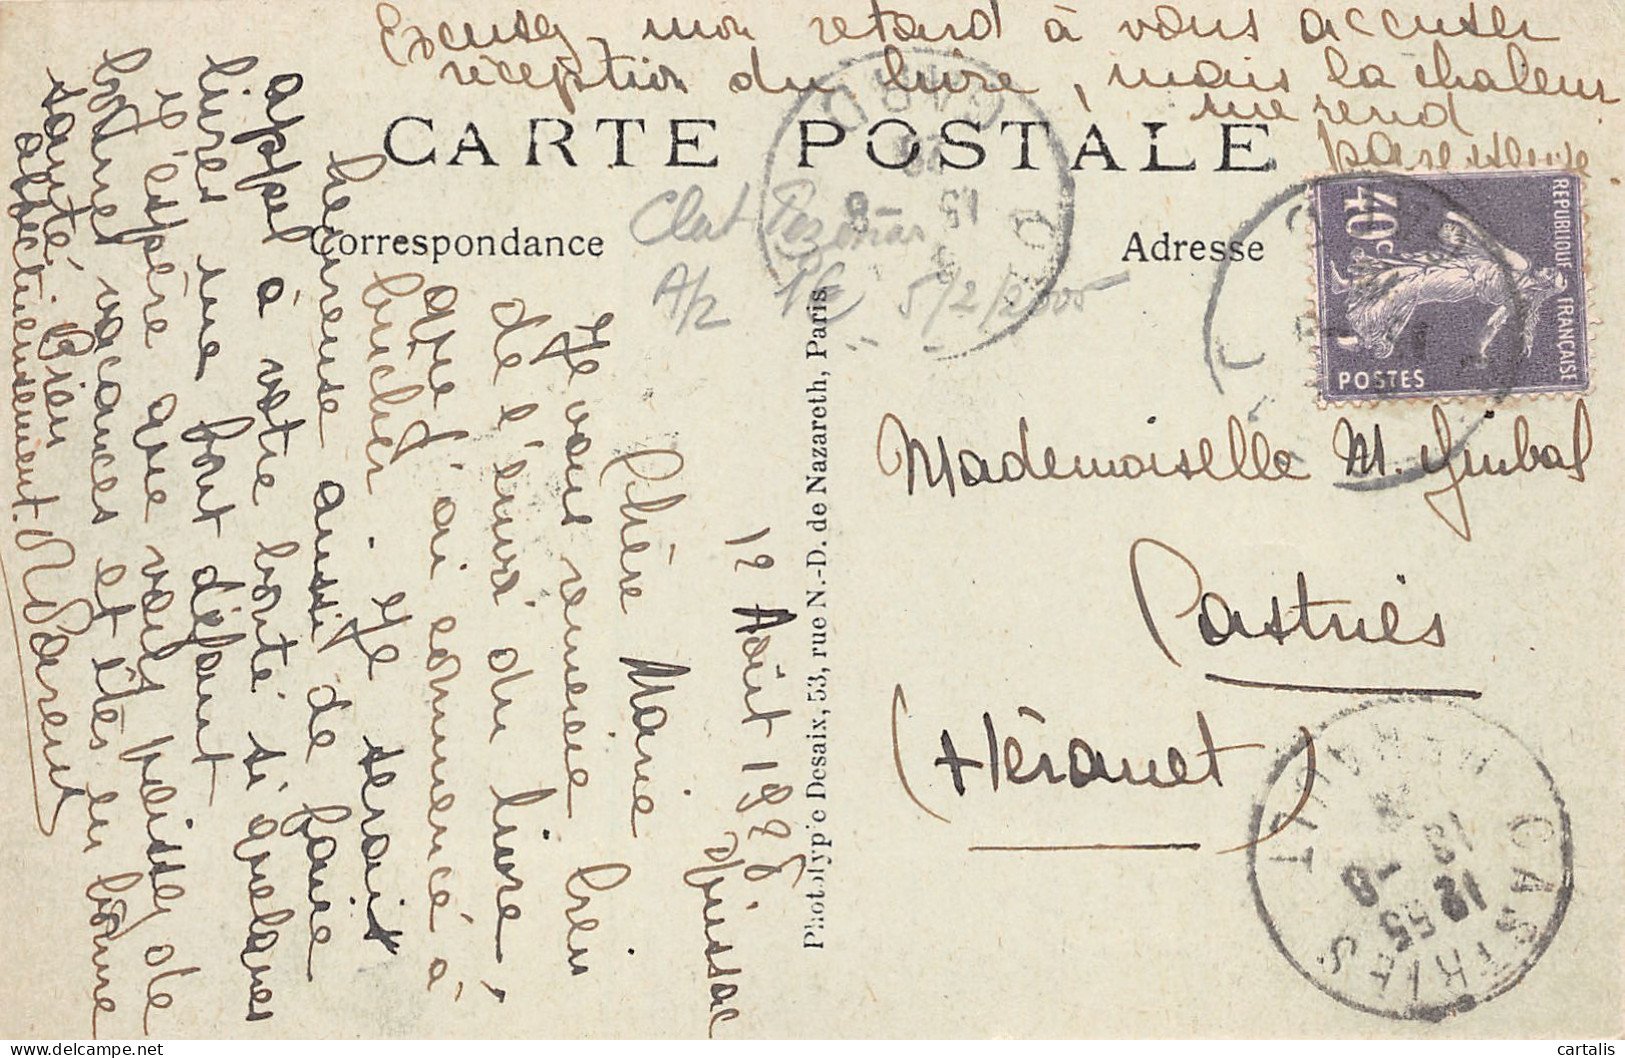 Excusez mon retard à vous accuser
réception du livre, mais la chaleur
me rend
paresseuse.
CARTE POSTALE
Correspondance
Adresse
Clat
A/2 5/2/2005
GARD
REPUBLIQUE FRANCAISE
40c
POSTES
Quissac
12 Août 1928
Chère Marie
Je vous remercie bien
de l'envoi du livre,
que j'ai commencé à
bûcher. Je serait
heureuse aussi de faire
appel à votre bonté si quelques
livres me font défaut
J'espère que vous puissez de
bonnes vacances et êtes en bonne
santé. Bien
affectueusement.
Phototypie Desaix, 53, rue N.-D. de Nazareth, Paris
Mademoiselle M. Gimbal
Castries
(Hérault)
CASTRIES HERAULT
12 55
13 -8
28
cartalis